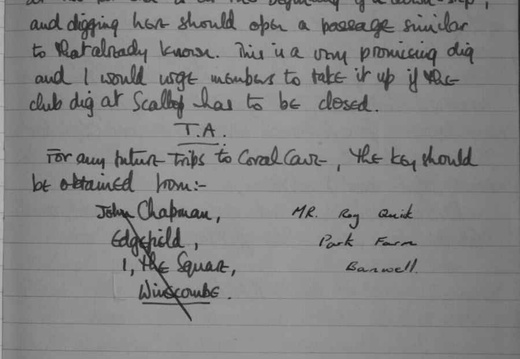 and digging here should open a passage similar
to that already known. This is a very promising dig
and I would urge members to take it up if the
club dig at Scallop has to be closed.
T.A.
For any future trips to Coral Cave, the key should
be obtained from:-
John Chapman,
Edgefield,
1, The Square,
Winscombe.
MR. Roy Quick
Park Farm
Banwell.